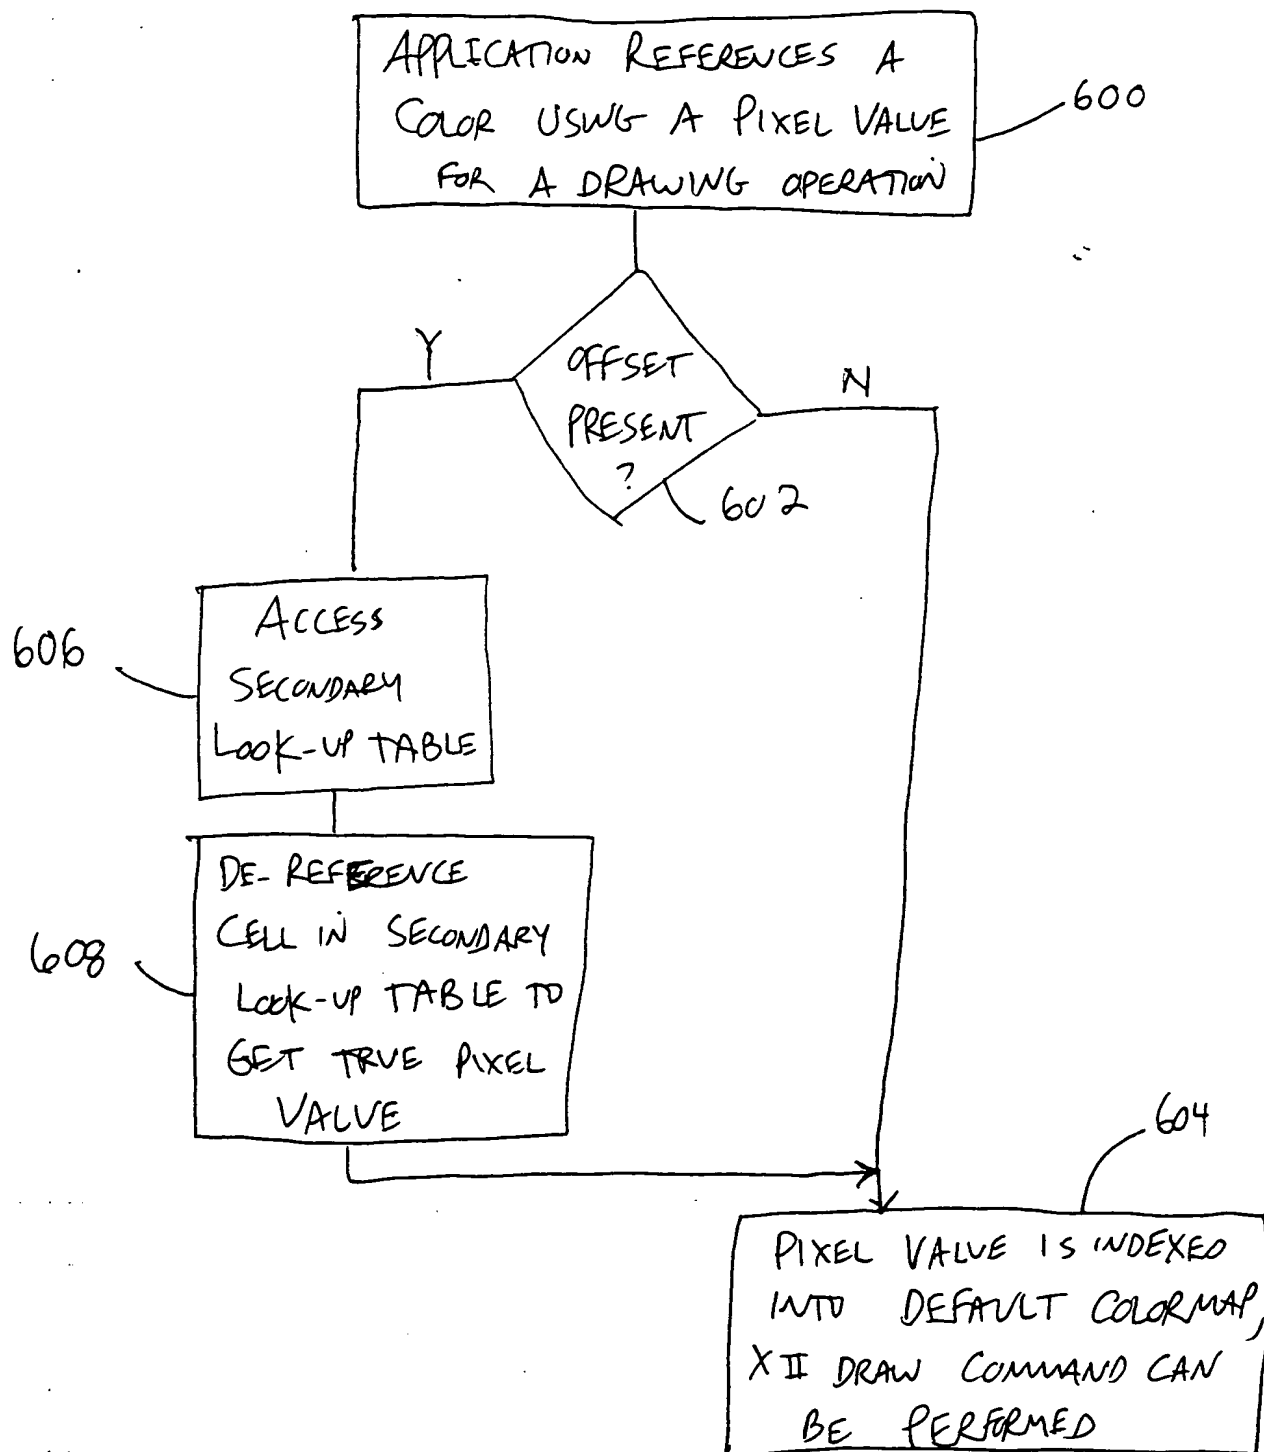 APPLICATION REFERENCES A
COLOR USING A PIXEL VALUE
FOR A DRAWING OPERATION
600
Y
OFFSET
PRESENT
?
N
602
ACCESS
SECONDARY
LOOK-UP TABLE
606
DE-REFERENCE
CELL IN SECONDARY
LOOK-UP TABLE TO
GET TRUE PIXEL
VALUE
608
604
PIXEL VALUE IS INDEXED
INTO DEFAULT COLORMAP,
X II DRAW COMMAND CAN
BE PERFORMED